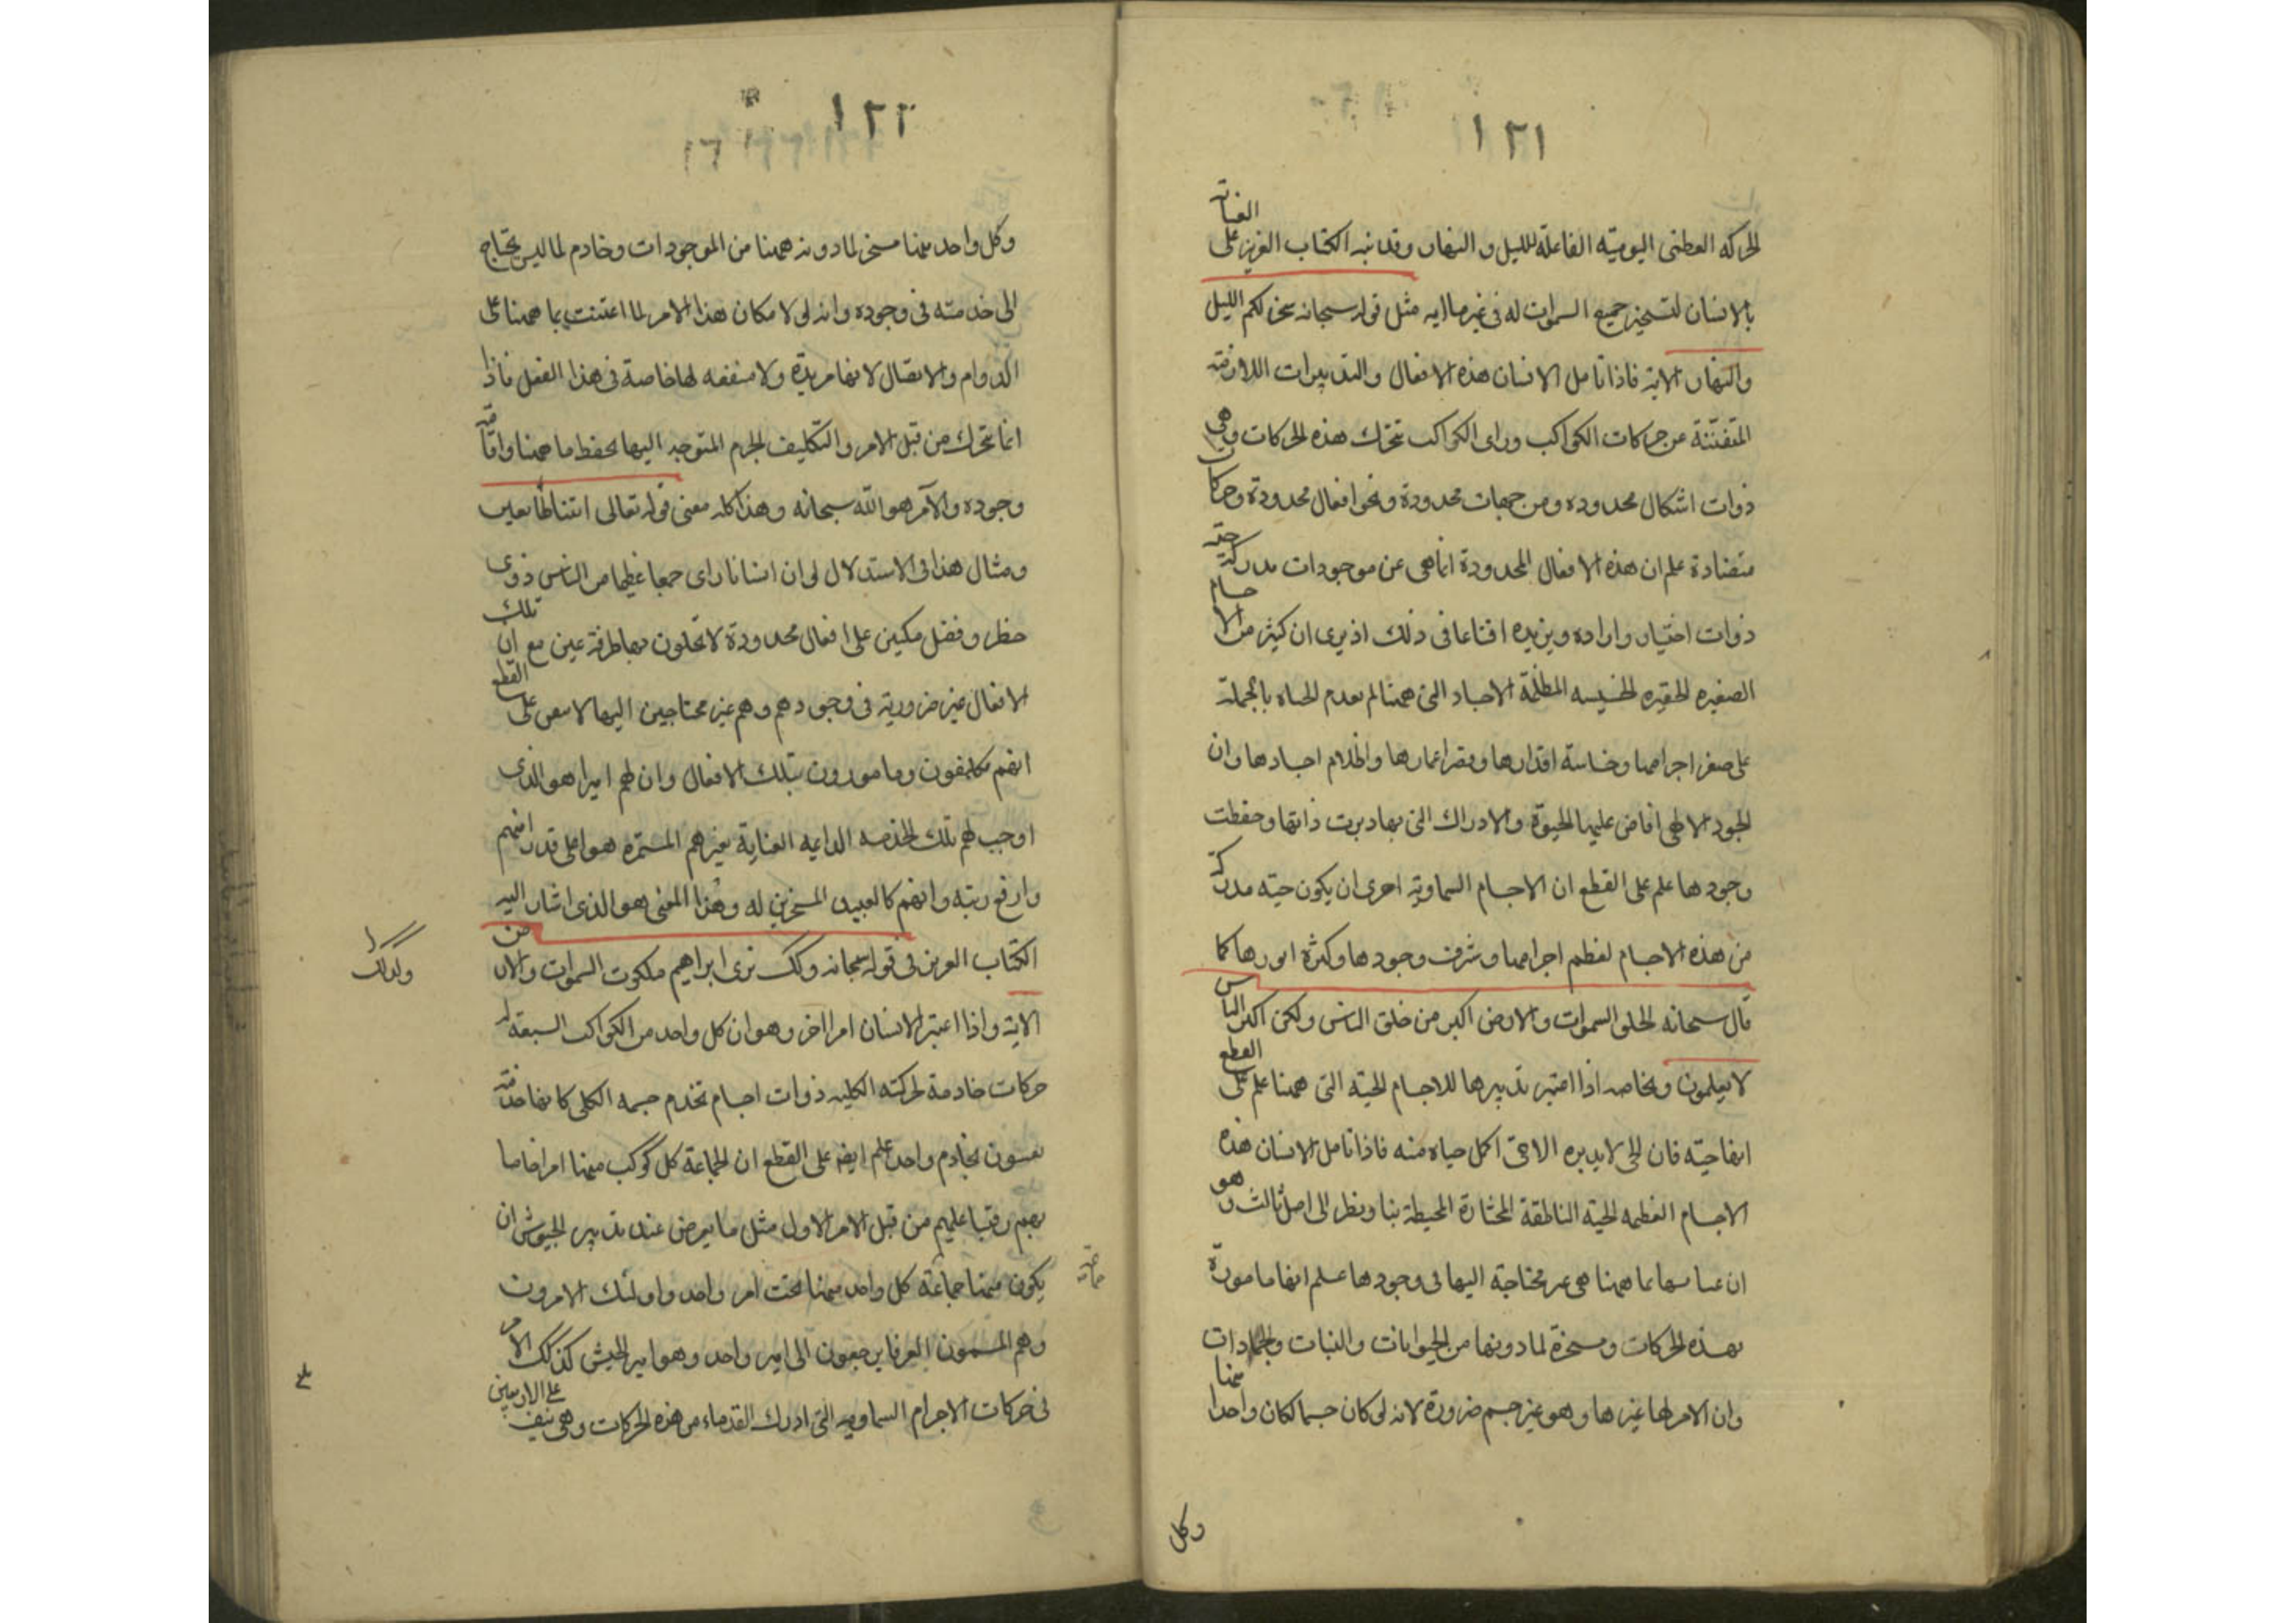 ١٢١
الحركه العظمى اليوميّه الفاعلة لليل و النهار وقد نبه الكتاب العزيز على العناية
بالانسان لتسخير جميع السموات له فى غير ما ايه مثل قوله سبحانه سخر لكم الليل
والنهار الاية فاذا تامل الانسان هذه الافعال والتدبيرات اللازمة
المتقنة عن حركات الكواكب وراى الكواكب تتحرك هذه الحركات وهى
ذوات اشكال محدوده ومن جهات محدودة ونحو افعال محدودة وحركات
متضادة علم ان هذه الافعال المحدودة انما هى عن موجودات مدركة حيّة
ذوات اختيار واراده ويزيده اقناعا فى ذلك اذ يرى ان كثير من الاجسام
الصغيره الحقيره الخسيسه المظلمة الاجساد التى ههنا لم يعدم الحياه بالجملة
على صغر اجرامها وخساسة اقدارها وقصر اعمارها واظلام اجسادها وان
الجود الالهى افاض عليها الحيوة والادراك التى بها دبرت ذاتها وحفظت
وجودها علم على القطع ان الاجسام السماوية احرى ان يكون حيّه مدركة
من هذه الاجسام لعظم اجرامها وشرف وجودها وكثرة انورها كما
قال سبحانه لخلق السموات والارض اكبر من خلق الناس ولكن اكثر الناس
لا يعلمون وبخاصه اذا اعتبر تدبيرها للاجسام الحيّه التى ههنا علم على القطع
انها حيّه فان الحى لا يدبره الا حى اكمل حياه منه فاذا تامل الانسان هذه
الاجسام العظيمه الحيّه الناطقة المختارة المحيطة بنا ونظر الى اصل ثالث وهو
ان عنايتها بما ههنا هى غير محتاجة اليها فى وجودها علم انها مامورة
بهذه الحركات ومسخرة لما دونها من الحيوانات والنبات والجمادات
وان الامر لها غيرها وهو غير جسم ضرورة لانه لو كان جسما لكان واحدا منها
وكل
١٢٢
وكل واحد منها مسخر لما دونه ههنا من الموجودات وخادم لما ليس يحتاج
الى خدمته فى وجوده وانه لولا مكان هذا الامر لما اعتنت بما ههنا على
الدوام والاتصال لانها مريدة ولا منفعه لها خاصة فى هذا الفعل فاذا
انما تتحرك من قبل الامر والتكليف الجرم المتوجه اليها لحفظ ما ههنا واقامة
وجوده والآمر هو اللّه سبحانه وهذا كله معنى قوله تعالى اتينا طايعين
ومثال هذا فى الاستدلال لو ان انسانا راى جمعا عظيما من الناس ذوى
خطر وفضل مكبين على افعال محدودة لا يخلون بها طرفة عين مع ان تلك
الافعال غير ضرورية فى وجودهم وهم غير محتاجين اليها لايقن على القطع
انهم مكلفون ومامورون بتلك الافعال وان لهم اميرا هو الذى
اوجب لهم تلك الخدمه الداعيه العناية بغيرهم المستمره هو اعلى قدرا منهم
وارفع رتبه وانهم كالعبيد المسخرين له وهذا المعنى هو الذى اشار اليه
الكتاب العزيز فى قوله سبحانه وكك نرى ابراهيم ملكوت السموات والارض
وكذلك
الاية واذا اعتبر الانسان امرا اخر وهو ان كل واحد من الكواكب السبعة له
حركات خادمة لحركته الكليه ذوات اجسام تخدم جسمه الكلى كانها خدمة
يعنون بخادم واحد علم ايضا على القطع ان لجماعة كل كوكب منها امرا خاصا
بهم رقيبا عليهم من قبل الامر الاول مثل ما يعرض عند تدبير الجيوش ان
يكون منها جماعة كل واحد منها تحت امر واحد واولئك الامرون
وهم المسمون العرفا يرجعون الى امير واحد وهو امير الجيش كذلك الامر
فى حركات الاجرام السماويه التى ادرك القدماء من هذه الحركات وهى نيف على الاربعين